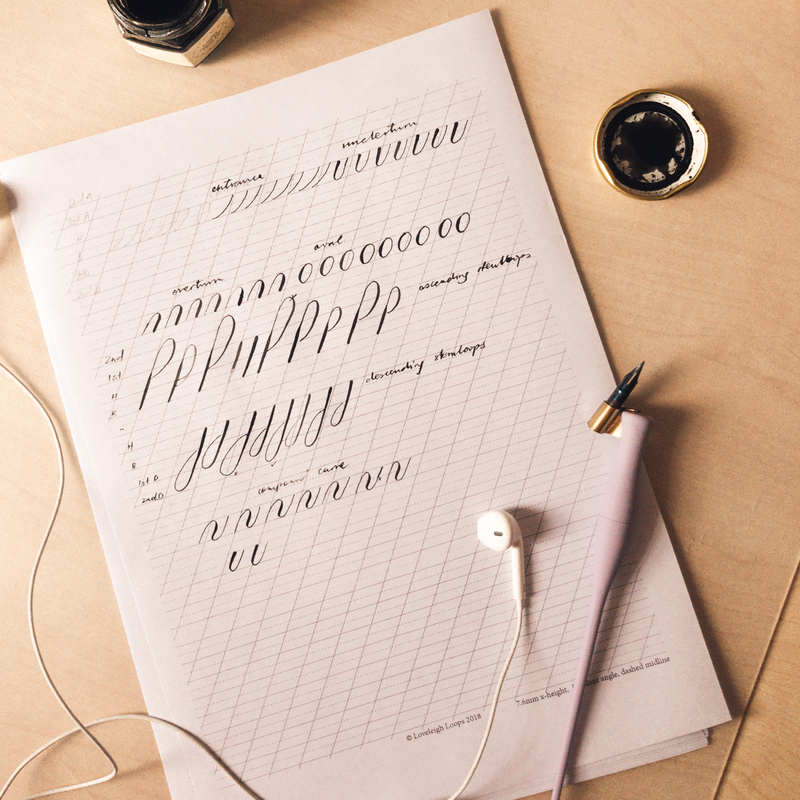 understurn
entrance
oval
overturn
ascending stemloops
2nd
1st
H
B
H
B
1st D
2nd D
descending stemloops
compound curve
© Loveleigh Loops 2018
7.6mm x-height, angle, dashed midline